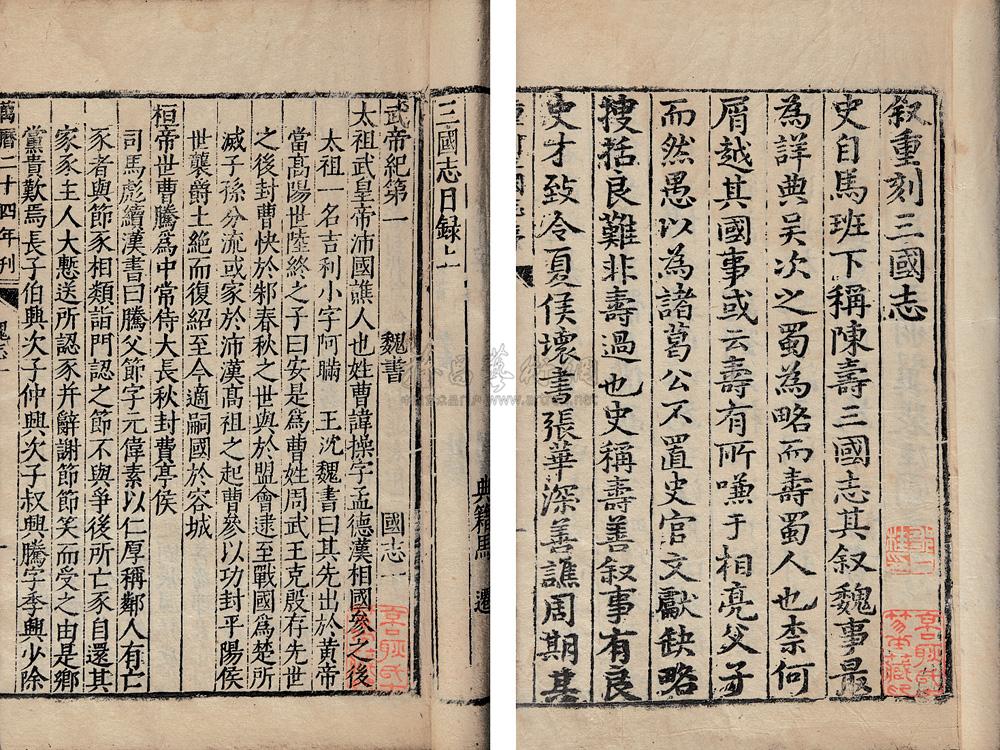 叙重刻三國志
史自馬班下稱陳壽三國志其叙魏事最
為詳典吴次之蜀為略而壽蜀人也柰何
屑越其國事或云壽有所嗛于相亮父子
而然愚以為諸葛公不置史官文獻缺略
搜括良難非壽過也史稱壽善叙事有良
史才致令夏侯壞書張華深善譙周期其
典籍馬 遷
三國志目録上
武帝紀第一 魏書 國志一
太祖武皇帝沛國譙人也姓曹諱操字孟德漢相國參之後
太祖一名吉利小字阿瞞 王沈魏書曰其先出於黄帝
當高陽世陸終之子曰安是為曹姓周武王克殷存先世
之後封曹俠於邾春秋之世與於盟會逮至戰國為楚所
滅子孫分流或家於沛漢高祖之起曹參以功封平陽侯
世襲爵土絶而復紹至今適嗣國於容城
桓帝世曹騰為中常侍大長秋封費亭侯
司馬彪續漢書曰騰父節字元偉素以仁厚稱鄰人有亡
豕者與節豕相類詣門認之節不與爭後所亡豕自還其
家豕主人大慙送所認豕并辭謝節節笑而受之由是鄉
黨貴歎焉長子伯興次子仲興次子叔興騰字季興少除
萬曆二十四年刊 魏志一 一